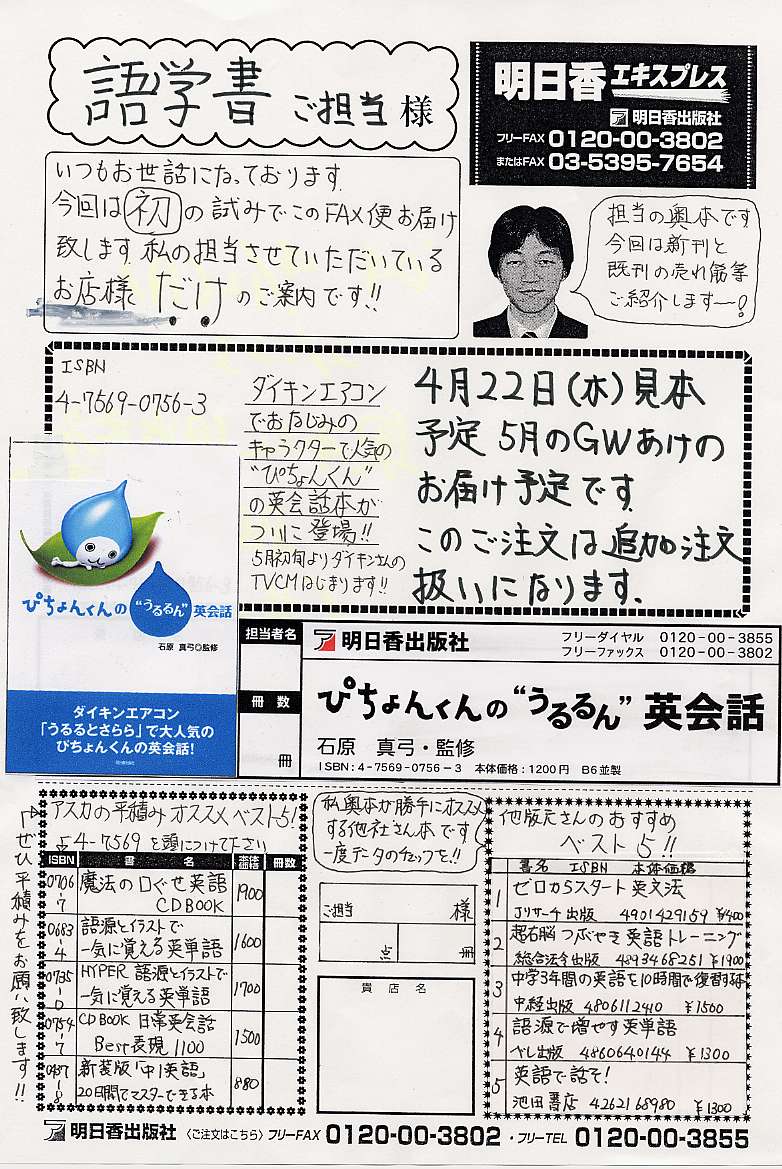 語学書 ご担当 様
明日香エキスプレス
ア 明日香出版社
フリーFAX 0120-00-3802
またはFAX 03-5395-7654
いつもお世話になっております。
今回は初の試みでこのFAX便お届け
致します。私の担当させていただいている
お店様だけのご案内です!!
担当の奥本です
今回は新刊と
既刊の売れ筋等
ご紹介します〜!
ISBN
4-7569-0756-3
ダイキンエアコン
でおなじみの
キャラクターで人気の
"ぴちょんくん"
の英会話本が
ついに登場!!
5月初旬よりダイキンさんの
TVCMはじまります!!
4月22日(水)見本
予定 5月のGWあけの
お届け予定です。
このご注文は追加注文
扱いになります。
ぴちょんくんの"うるるん"英会話
石原 真弓◎監修
ダイキンエアコン
「うるるとさらら」で大人気の
ぴちょんくんの英会話!
担当者名
冊数
冊
ア 明日香出版社
フリーダイヤル 0120-00-3855
フリーファックス 0120-00-3802
ぴちょんくんの"うるるん"英会話
石原 真弓・監修
ISBN:4-7569-0756-3 本体価格:1200円 B6並製
アスカの平積みオススメベスト5!
4-7569を頭につけて下さい
ISBN 書名 本体価格 冊数
0706-7 魔法の口ぐせ英語 CD BOOK 1900
0683-4 語源とイラストで一気に覚える英単語 1600
0735-0 HYPER 語源とイラストで一気に覚える英単語 1700
0754-7 CD BOOK 日常英会話 Best表現1100 1500
0437-8 新装版「中1英語」20日間でマスターできる本 880
「ぜひ平積みをお願い致します!!
私奥本が勝手にオススメ
する他社さん本です
一度データのチェックを!!
ご担当 様
点 冊
貴店名
他版元さんのおすすめ
ベスト5!!
書名 ISBN 本体価格
1 ゼロからスタート英文法
Jリサーチ出版 4901429159 ¥1400
2 超右脳つぶやき英語トレーニング
総合法令出版 4893468251 ¥1900
3 中学3年間の英語を10時間で復習する本
中経出版 4806112410 ¥1500
4 語源で増やす英単語
ベレ出版 4860640144 ¥1300
5 英語で話そ!
池田書店 4262168980 ¥1300
ア 明日香出版社 〈ご注文はこちら〉フリーFAX 0120-00-3802 ・フリーTEL 0120-00-3855